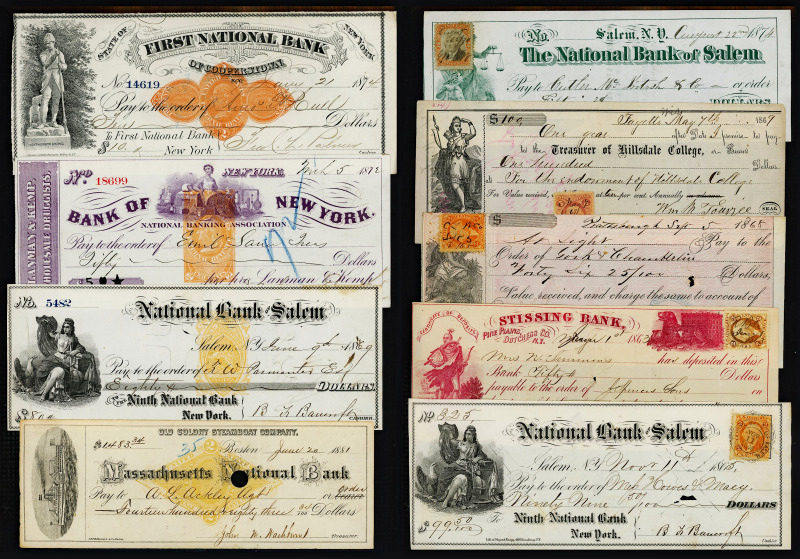 STATE OF
NEW YORK
FIRST NATIONAL BANK
OF COOPERSTOWN
No. 14619
21 1874
Pay to the order of Hull
Dollars
To First National Bank
$10 New York
Cashier
LANMAN & KEMP,
WHOLESALE DRUGGISTS.
No 18699
NEW YORK,
5 1872
BANK OF NEW YORK.
NATIONAL BANKING ASSOCIATION
Pay to the order of
Fifty Dollars
for pro Lanman & Kemp
No. 5482
National Bank of Salem
Salem, N.Y. June 9th 1869
Pay to the order of Parmenter Esq
Eighty DOLLARS
To Ninth National Bank
New York.
B F Bancroft
Cashier
OLD COLONY STEAMBOAT COMPANY.
$1483.34
35 Boston June 20 1881
Massachusetts National Bank
Pay to A. G. Ackley Agt or order bearer
Fourteen hundred eighty three 34/100 Dollars
John M. Washburn
TREASURER
No. Salem, N.Y. August 22nd 1874
The National Bank of Salem
Pay to Cutler & Co or order
DOLLARS
$100 Fayette May 7th 1869
One year after Date I promise to pay
to the Treasurer of Hillsdale College, or Bearer
One Hundred Dollars
For the endowment of Hillsdale College
For Value received, at per cent Annually
Wm. M. Tourjee
SEAL
$
Sept 5 1865
At Sight Pay to the
Order of York & Chamberlin
Forty Six 25/100 Dollars,
Value received, and charge the same to account of
STISSING BANK,
PINE PLAINS,
DUTCHESS CO.
N.Y.
1st 186
Mrs N. Simmons has deposited in this
Bank Fifty Dollars
payable to the order of Spencer Sons
on
No 325
National Bank of Salem
Salem, N.Y. Nov 11th 1865,
Pay to the order of Mess Howes & Macy
Ninety Nine 50/100 DOLLARS
$99.50/100
To Ninth National Bank
New York.
B F Bancroft
Cashier